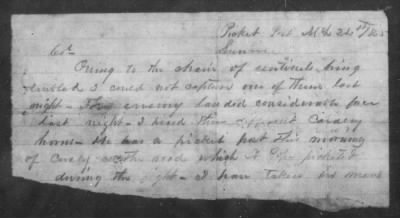 Picket Post Mch 24th 1865
Col.
Owing to the chain of sentinels being
doubled I could not capture one of them last
night - The enemy landed considerable force
last night - I heard them opposite
home - he has a picket post this morning
of Cavalry on the road which is picketed
during the night - I have taken